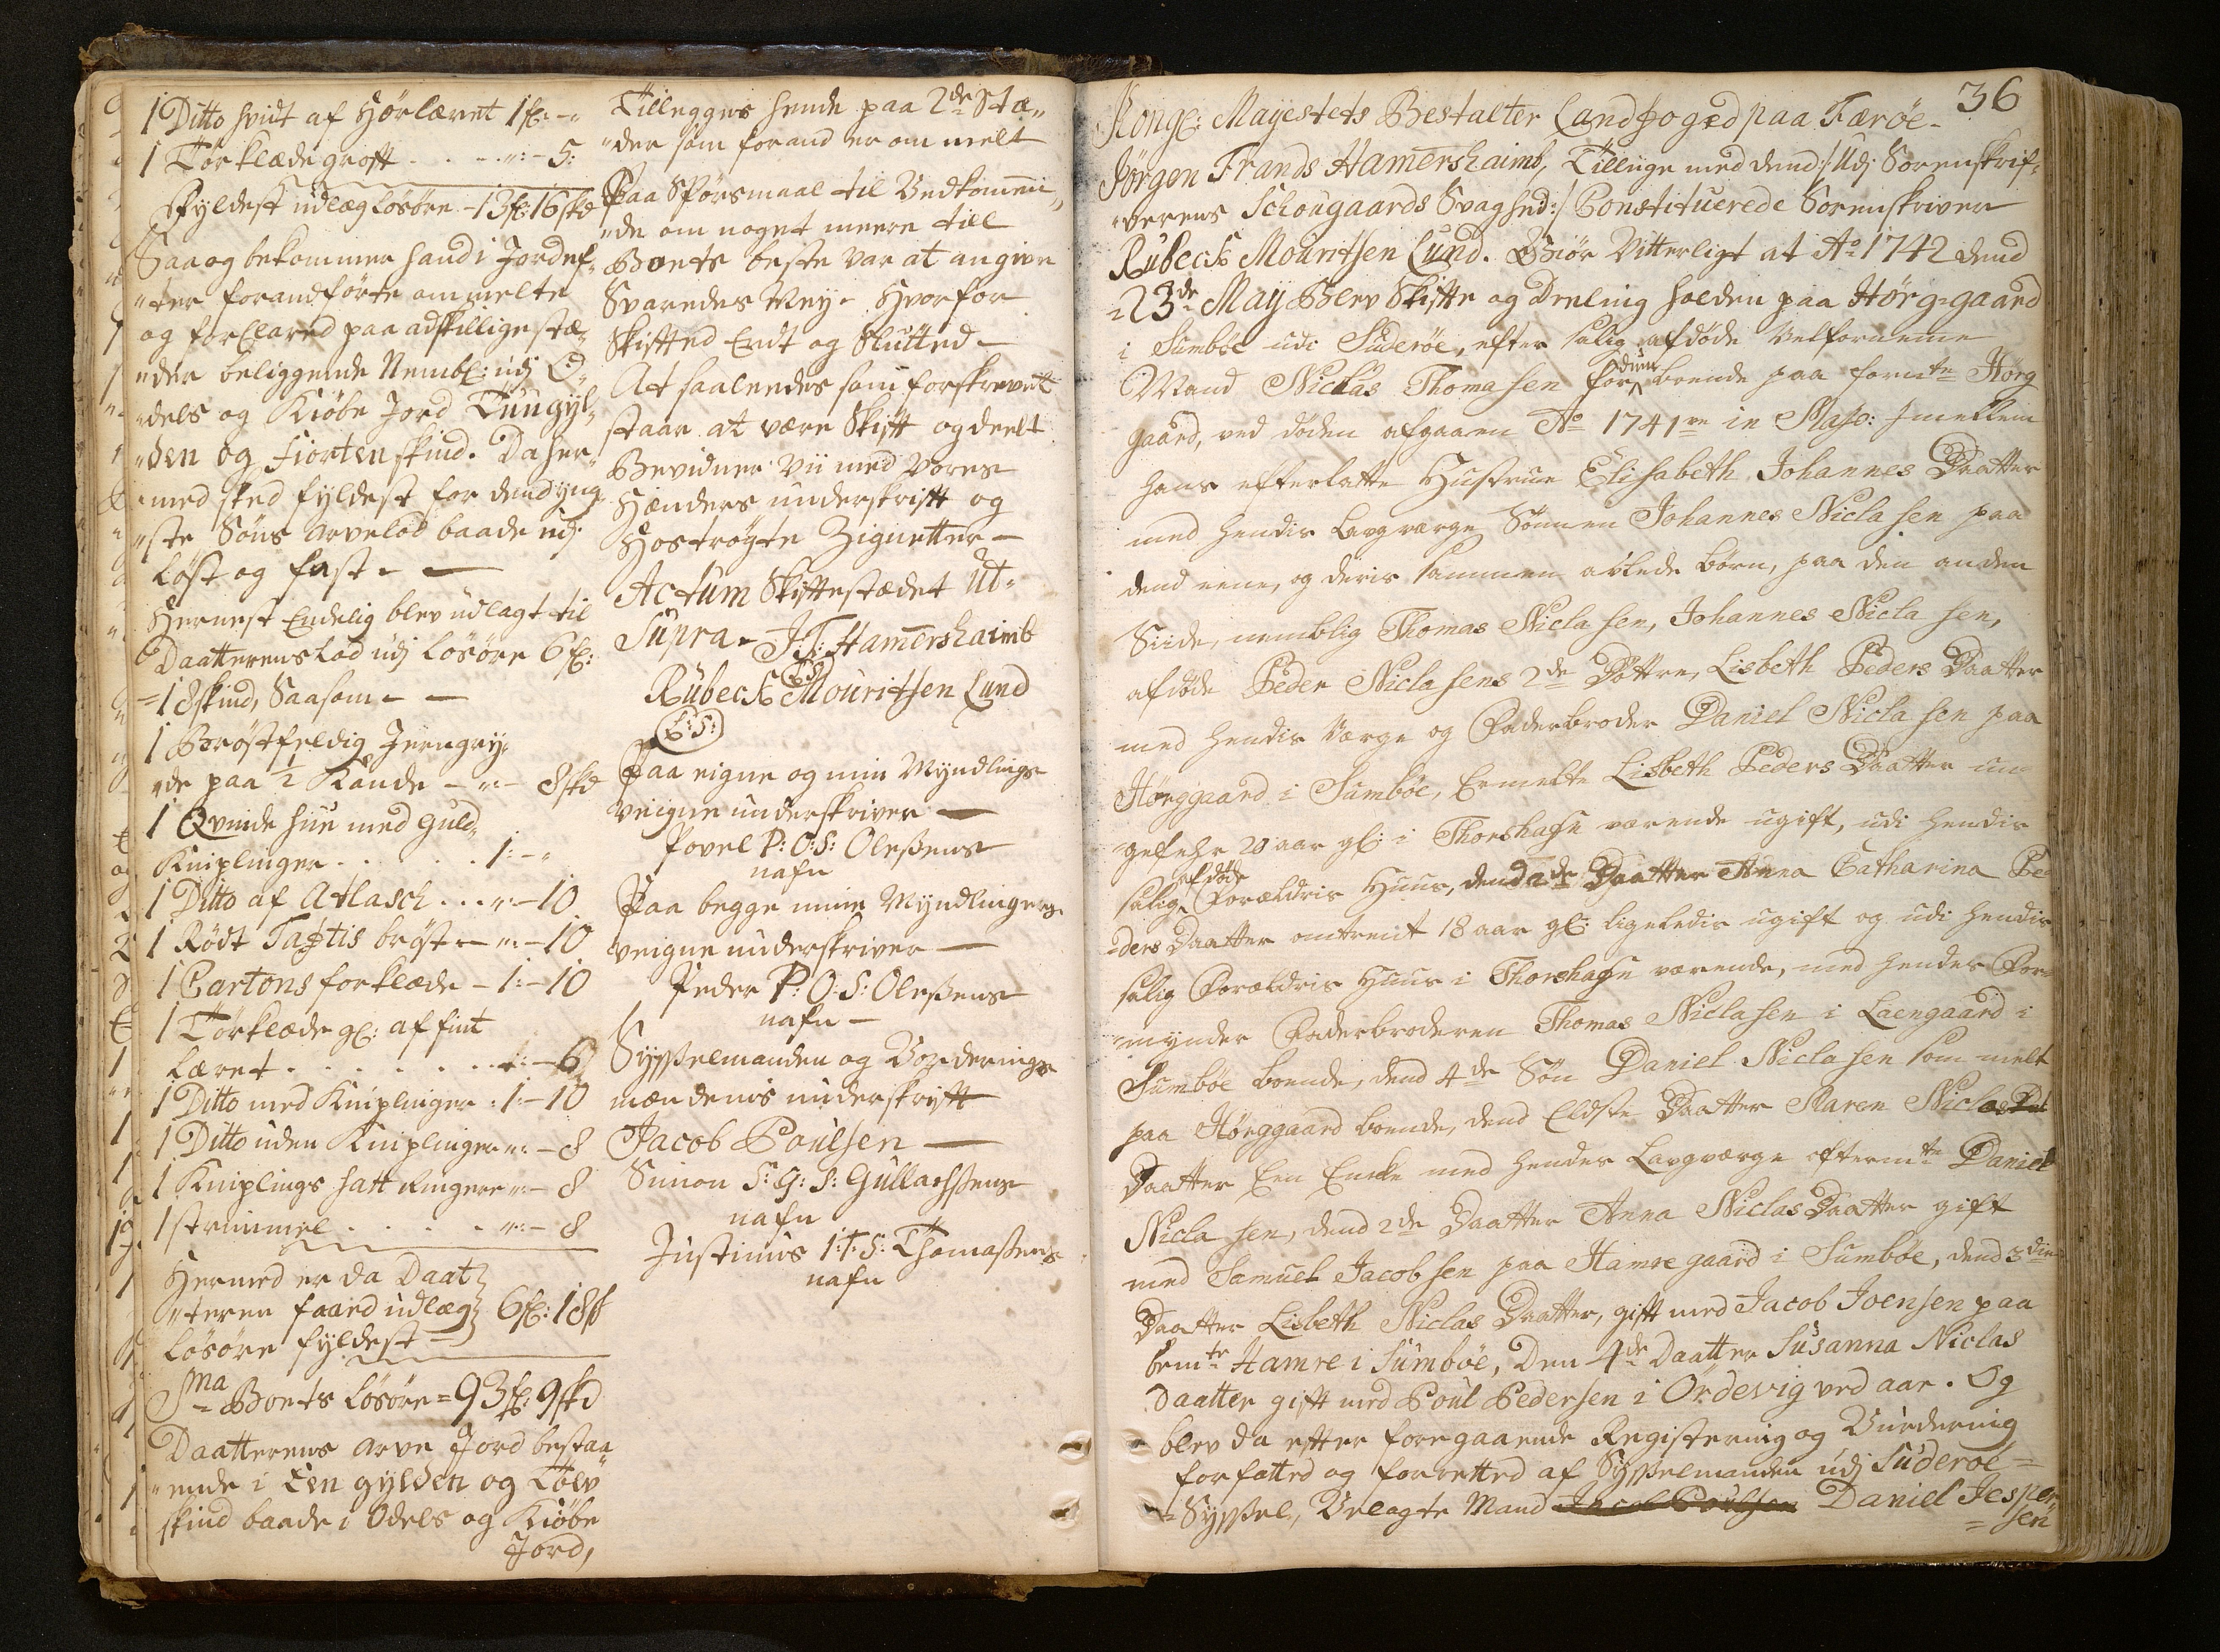 1 Ditto hvidt af Hørlæret 1fl: -„
1 Tørklæde groft . . . -„:- 5:
Fyldest udlæg Løsøre -13fl: 16skd
Saa og bekommer hand i Jordef„
„ter forandførte ommelte
og forClared paa adskillige stæ„
„der beliggende Nembl: udj O„
„dels og Kiøbe Jord Tuugyl„
„den og Fiorten skind. Da her„
„med sked fyldest for dend yng„
„ste Søns Arvelod baade udj
Løst og fast - —
Hernest Endelig blev udlagt til
Daatterens Lod udj Løsøre 6fl:
=18skind, Saasom - —
1 Brøstfeldig Jerngry„
„de paa ½ Kande - „:- 8skd
1 Qvinde hue med Guld„
Kniplinger . . . . . 1:-„
1 Ditto af Atlasch . . . „:-10
1 Rødt Taftis brøst - „:-10
1 Cartons forklæde - 1:-10
1 Tørklæde gl: af fint
Læret . . . . . . . „:-6
1 Ditto med Kniplinger : 1:-10
1 Ditto uden Kniplinger „:-8
1 Kniplings hatt Ringere „:-8
1 strimmel . . . . . „:-8
Hermed er da Daat„
„teren faared udlæg 6fl: 18s
Løsøre fyldest —
Sma Boets Løsøre = 93fl: 9skd
Daatterens Arve Jord bestaa„
„ende i Een gylden og Tolv
skind baade i Odels og Kiøbe
Jord,
Tillegges hende paa 2de Stæ„
„der som forand er om melt
Paa Spørsmaal til Vedkommen„
„de om noget meere till
Boets beste var at angive
Svaredes Ney - Hvorfor
Skifted Endt og Slutted -
At saaleedes som forskrevet
staar at være Skift og deelt
Bevidner Vii med Vores
Hænders underskrift og
Hostrøgte Zignetter -
Actum Skiftestædet Ut„
Supra - J:F: Hamershaimb
(L:S:)
Rubeck Mouritsen Lund
(L:S:)
Paa eigne og min Myndlings
veigne underskriver —
Povel P:O:S: Oleßens
nafn
Paa begge mine Myndlingers
veigne underskriver —
Peder P:O:S: Oleßens
nafn —
Sysselmanden og Vorderings
mændenis underskrift
Jacob Poulsen —
Simon S:G:S: Gullachsens
nafn
Justinus I:T:S: Thomaßens
nafn
36
Kongl: Mayestets Bestalter Landfoged paa Færøe -
Jørgen Frands Hamershaimb, Tilliige med dend /: Udj Sorenskrif„
„verens Schougaards Svaghed :/ Constituerede Sorenskriver
Rubeck Mouritsen Lund. Giør Vitterligt at Ao 1742 dend
23de May Blev Skifte og Deeling holden paa Hørg-gaard
i Sumbøe udi Suderøe, efter salig afdøde Velfornemme
Mand Niclas Thomasen fordum boende paa formte Hørg
gaard, ved døden afgaaen Ao 1741 in Majo: Jmellem
hans efterlatte Hustrue Elisabeth Johannes Daatter
med hendis Laugværge Sønnen Johannes Niclasen paa
dend eene, og deris sammen aflede børn, paa den anden
Siide, nemblig Thomas Niclasen, Johannes Niclasen,
afdøde Peder Niclasens 2de Døttre, Lisbeth Peders Daatter
med hendis Værge og Faderbroder Daniel Niclasen paa
Hørggaard i Sumbøe, Ermelte Lisbeth Peders Daatter un„
„gefehr 20 aar gl: i Thorshafn værende ugift, udi hendis
salig afdøde Forældris Huus, dend 2de Daatter Anna Catharina Pe„
„ders Daatter omtrent 18 aar gl: ligeledis ugift og udi hendis
salig Forældris Huus i Thorshafn værende, med hendes For„
„mynder Faderbroderen Thomas Niclasen i Laengaard i
Sumbøe boende, dend 4de Søn Daniel Niclasen som melt
paa Hørggaard boende, dend Eldste Daatter Karen Niclas
Daatter Een Encke med hendes Laugværge oftermte Daniel
Niclasen, dend 2de Daatter Anna Niclas Daatter gift
med Samuel Jacobsen paa Hamre gaard i Sumbøe, dend 3die
Daatter Lisbeth Niclas Daatter, gift med Jacob Joensen paa
bemte Hamre i Sumbøe, Den 4de Daatter Susanna Niclas
Daatter gift med Poul Pedersen i Ordevig ved aar. Og
blev da efter foregaaende Registering og Vurdering
forfatted og forretted af Sysselmanden udj Suderøe=
=Syssel, Velagte Mand Jacob Poulsen Daniel Jesper„
=sen